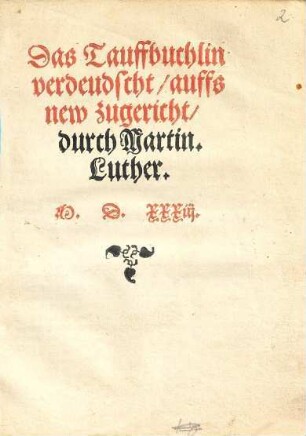 2
Das Tauffbuchlin
verdeudscht / auffs
new zugericht /
durch Martin.
Luther.
M. D. XXXiij.